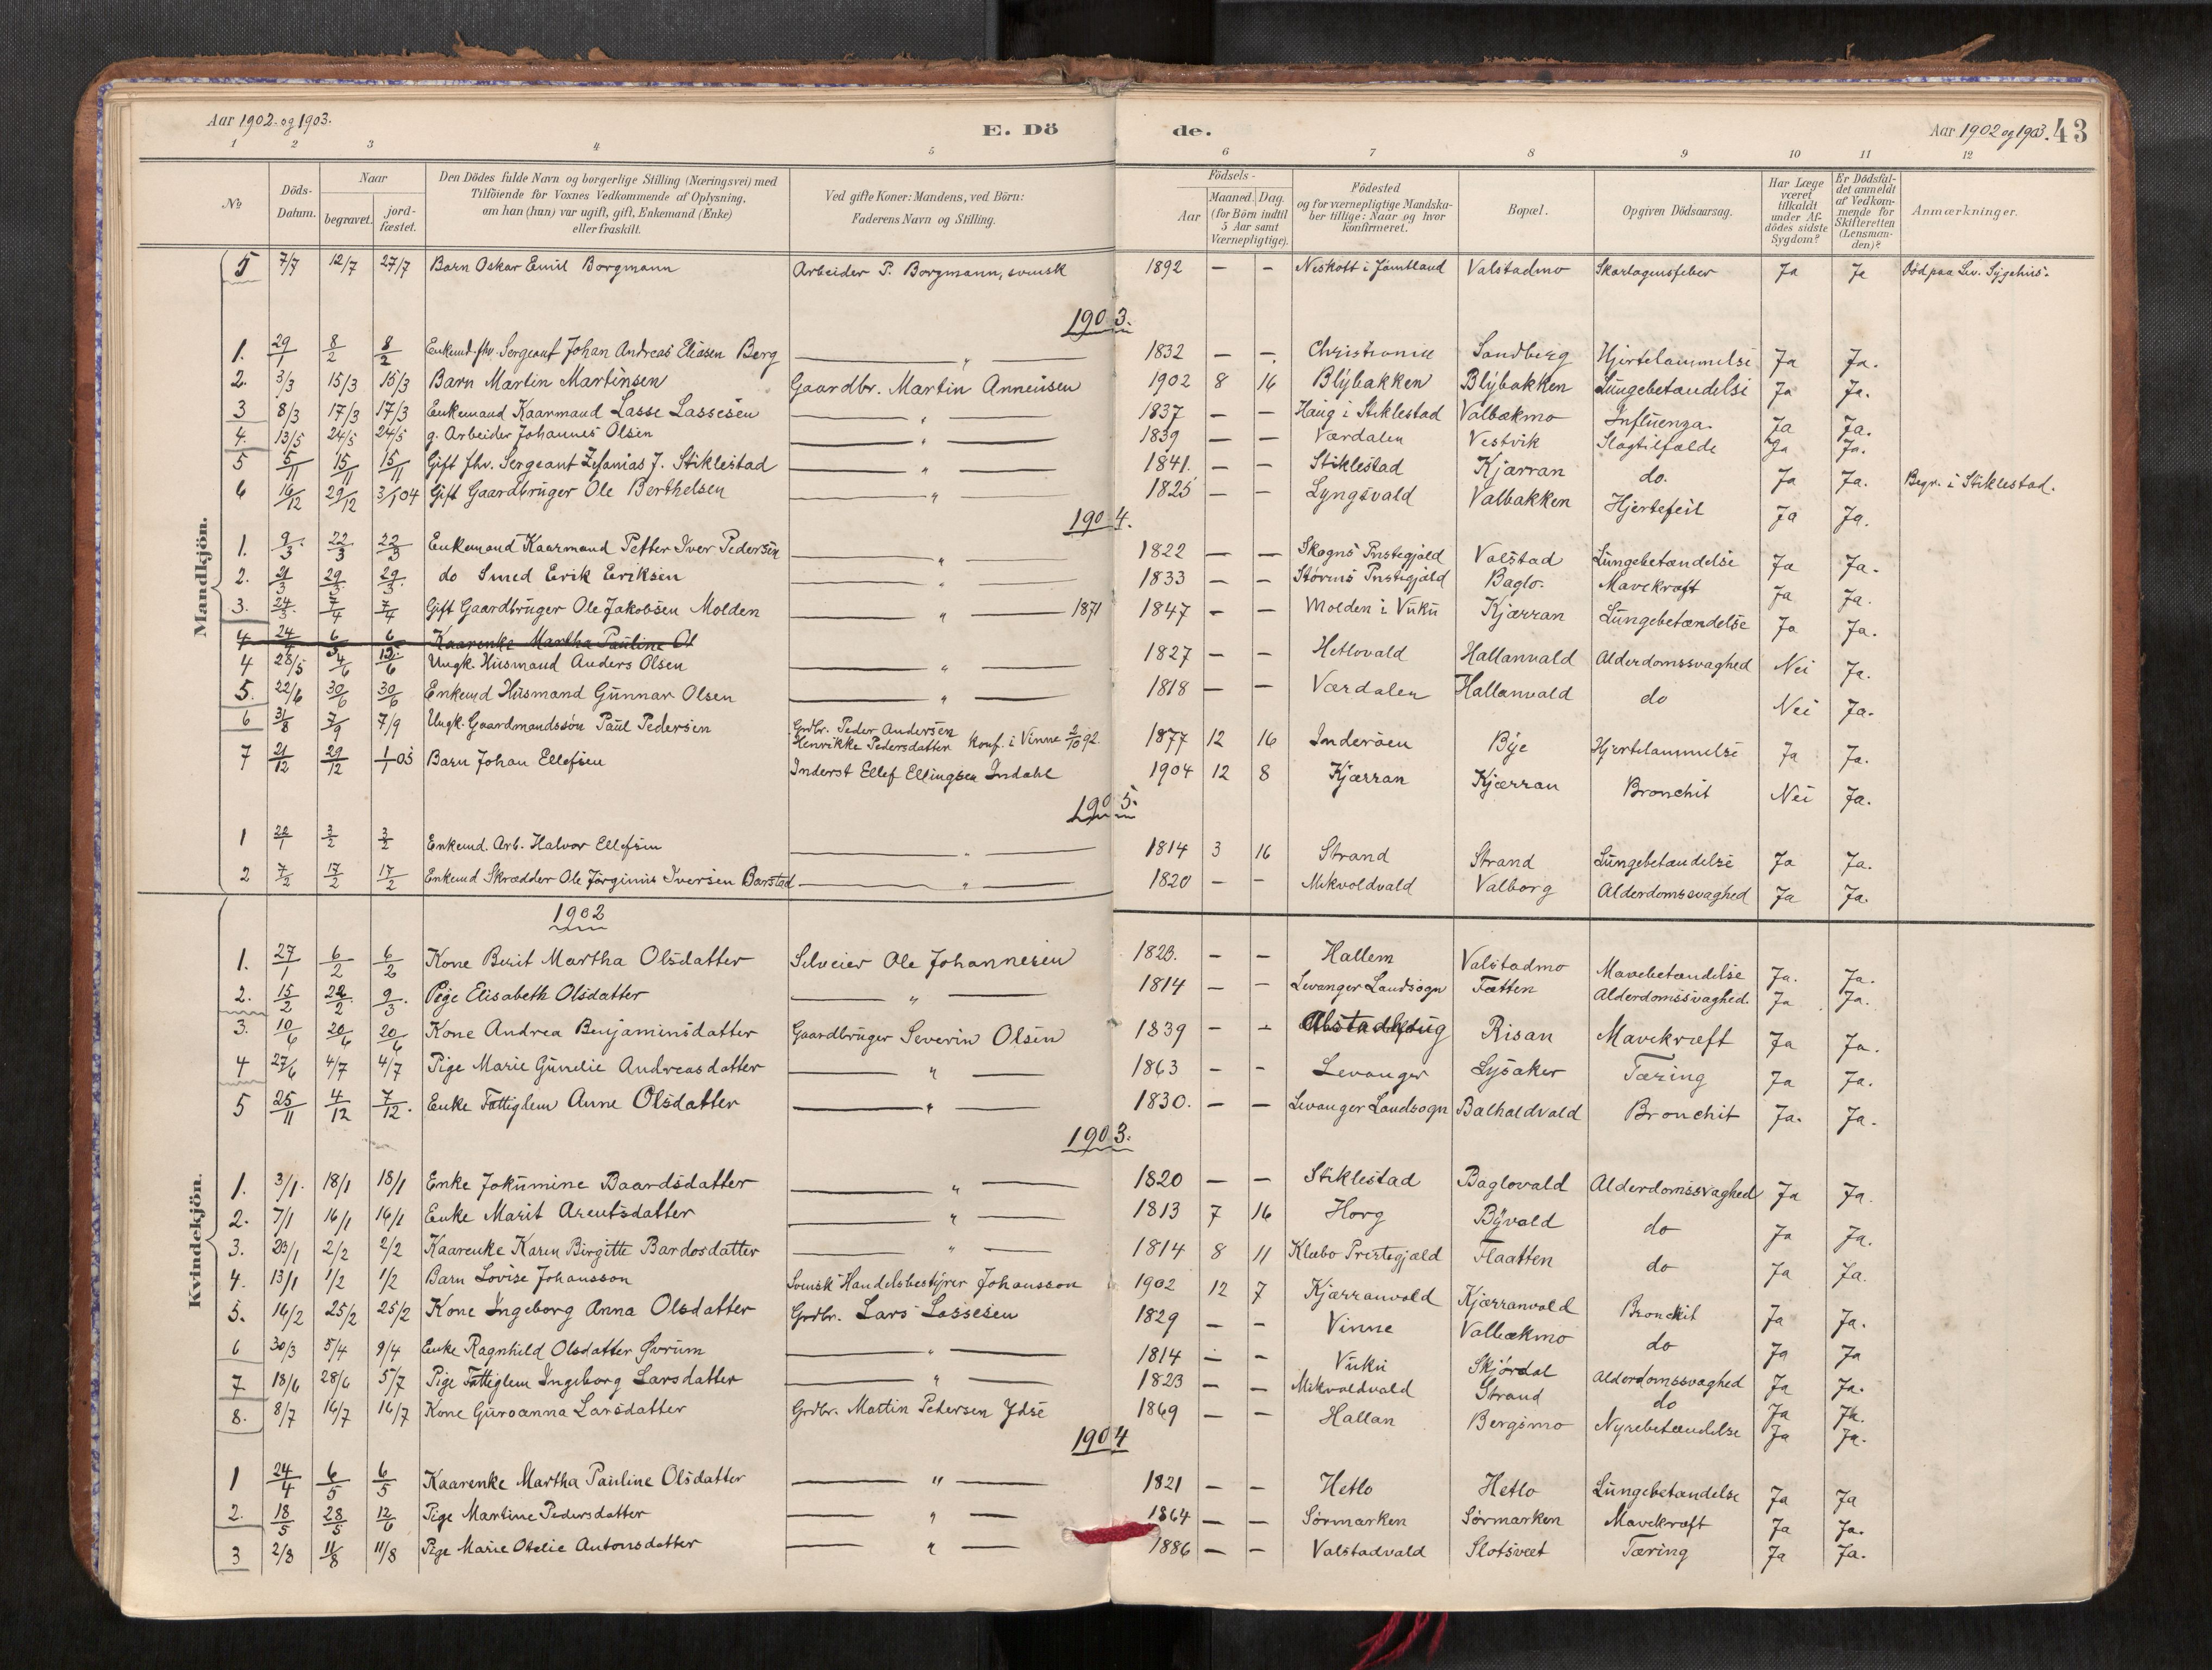 Aar 1902 og 1903.
E. Dö
de.
Aar 1902 og 1903. 43
1 2 3 4 5 6 7 8 9 10 11 12
No
Döds-Datum.
Naar
begravet.
jord-fæstet.
Den Dödes fulde Navn og borgerlige Stilling (Næringsvei) med Tilföiende for Voxnes Vedkommende af Oplysning, om han (hun) var ugift, gift, Enkemand (Enke) eller fraskilt.
Ved gifte Koner: Mandens, ved Börn: Faderens Navn og Stilling.
Födsels-
Aar
Maaned. Dag.
(for Börn indtil 5 Aar samt Værnepligtige).
Födested og for værnepligtige Mandskaber tillige: Naar og hvor konfirmeret.
Bopæl.
Opgiven Dödsaarsag.
Har Læge været tilkaldt under Afdödes sidste Sygdom?
Er Dödsfaldet anmeldt af Vedkommende for Skifteretten (Lensmanden)?
Anmærkninger.
Mandkjön.
5 7/7 12/7 27/7 Barn Oskar Emil Borgmann Arbeider P. Borgmann, svensk 1892 — — Neskott i Jämtland Valstadmo Skarlagensfeber Ja Ja Död paa Lev. Sygehus.
1903.
1. 29/1 8/2 8/2 Enkemd. fhv. Sergeant Johan Andreas Eliasen Berg — „ — 1832 — — Christiania Sandberg Hjertelammelse Ja Ja.
2. 3/3 15/3 15/3 Barn Martin Martinsen Gaardbr. Martin Annensen 1902 8 16 Blybakken Blybakken Lungebetændelse Ja Ja.
3 8/3 17/3 17/3 Enkemand Kaarmand Lasse Lassesen — „ — 1837 — — Haug i Stiklestad Valbækmo Influenza. Ja Ja.
4. 13/5 24/5 24/5 g. Arbeider Johannes Olsen — „ — 1839 — — Værdalen Vestvik Slagtilfælde Ja Ja.
5 5/11 15/11 15/11 Gift fhv. Sergeant Zefanias J. Stiklestad — „ — 1841. — — Stiklestad Kjærran do. Ja Ja. Begr. i Stiklestad.
6 16/12 29/12 3/1 04 Gift Gaardbruger Ole Berthelsen — „ — 1825 — — Lyngsvald Valbakken Hjertefeil Ja Ja.
1904.
1. 9/3 22/3 22/3 Enkemand Kaarmand Petter Iver Pedersen — „ — 1822 — — Skogns Prstegjæld Valstad Lungebetændelse Ja Ja.
2. 21/3 29/3 29/3 do Smed Erik Eriksen — „ — 1833 — — Störens Prstegjæld Baglo. Mavekræft Ja Ja.
3. 24/3 7/4 7/4 Gift Gaardbruger Ole Jakobsen Molden — „ — 1871 1847 — — Molden i Vuku Kjærran Lungebetændelse Ja Ja.
4 24/4 6/5 6/5 Kaarenke Martha Pauline Ol
4 28/5 4/6 12/6 Ungk. Husmand Anders Olsen — „ — 1827 — — Hetlovald Hallanvald Alderdomssvaghed Nei Ja.
5. 22/6 30/6 30/6 Enkemd Husmand Gunnar Olsen — „ — 1818 — — Værdalen Hallanvald do Nei Ja.
6 31/8 7/9 7/9 Ungk. Gaardmandssön Paul Pedersen Grdbr. Peder Andersen
Henrikke Pedersdatter konf. i Vinne 2/10 92. 1877 12 16 Inderöen Bye Hjertelammelse Ja Ja.
7 21/12 29/12 1/1 05 Barn Johan Ellefsen Inderst Ellef Ellingsen Indahl 1904 12 8 Kjærran Kjærran Bronchit Nei Ja.
1905.
1 22/1 3/2 3/2 Enkemd. Arb. Halvor Ellefsen — „ — 1814 3 16 Strand Strand Lungebetændelse Ja Ja.
2 7/2 17/2 17/2 Enkemd Skrædder Ole Jörginus Iversen Barstad — „ — 1820 — — Mikvoldvald Valborg Alderdomssvaghed Ja Ja.
Kvindekjön.
1902
1. 27/1 6/2 6/2 Kone Berit Martha Olsdatter Selveier Ole Johannesen 1823. — — Hallem Valstadmo Mavebetændelse Ja. Ja.
2. 15/2 22/2 9/3. Pige Elisabeth Olsdatter — „ — 1814 — — Levanger Landsogn Fætten Alderdomssvaghed. Ja Ja.
3. 10/6 20/6 20/6 Kone Andrea Benjaminsdatter Gaardbruger Severin Olsen 1839 — — Risan Mavekræft Ja Ja.
4 27/6 4/7 4/7 Pige Marie Gunelie Andreasdatter — „ — 1863 — — Levanger Lysaker Tæring Ja Ja.
5 25/11 4/12 7/12. Enke Fattiglem Anne Olsdatter — „ — 1830. — — Levanger Landsogn Balhaldvald Bronchit Ja. Ja.
1903.
1. 3/1. 18/1 18/1 Enke Jokumine Baardsdatter — „ — 1820 — — Stiklestad Baglovald Alderdomssvaghed Ja Ja.
2. 7/1 16/1 16/1 Enke Marit Arentsdatter — „ — 1813 7 16 Horg Byvald do Ja Ja.
3. 23/1 2/2 2/2 Kaarenke Karen Birgitte Bardosdatter — „ — 1814 8 11 Klæbo Prestegjæld Flaatten do Ja Ja.
4. 13/1 1/2 1/2 Barn Lovise Johansson Svensk Handelsbestyrer Johansson 1902 12 7 Kjærranvold Kjærranvold Bronchit Ja Ja.
5. 16/2 25/2 25/2 Kone Ingeborg Anna Olsdatter Grdbr. Lars Lassesen 1829 — — Vinne Valbækmo do Ja Ja
6 30/3 5/4 9/4 Enke Ragnhild Olsdatter Övrum — „ — 1814 — — Vuku Skjördal Alderdomssvaghed Ja Ja.
7 18/6 28/6 5/7 Pige Fattiglem Ingeborg Larsdatter — „ — 1823 — — Mikvoldvald Strand do Ja Ja.
8. 8/7 16/7 16/7 Kone Guroanna Larsdatter Grdbr. Martin Pedersen Ydse 1869 — — Hallan Bergsmo Nyrebetændelse Ja Ja.
1904
1 24/4 6/5 6/5 Kaarenke Martha Pauline Olsdatter — „ — 1821 — — Hetlo Hetlo Lungebetændelse Ja Ja
2. 18/5 28/5 12/6 Pige Martine Pedersdatter — „ — 1864 — — Sörmarken Sörmarken Mavekræft Ja Ja.
3 2/8 11/8 11/8 Pige Marie Otelie Antonsdatter — „ — 1886 — — Valstadvald Slotsveet Tæring Ja Ja.